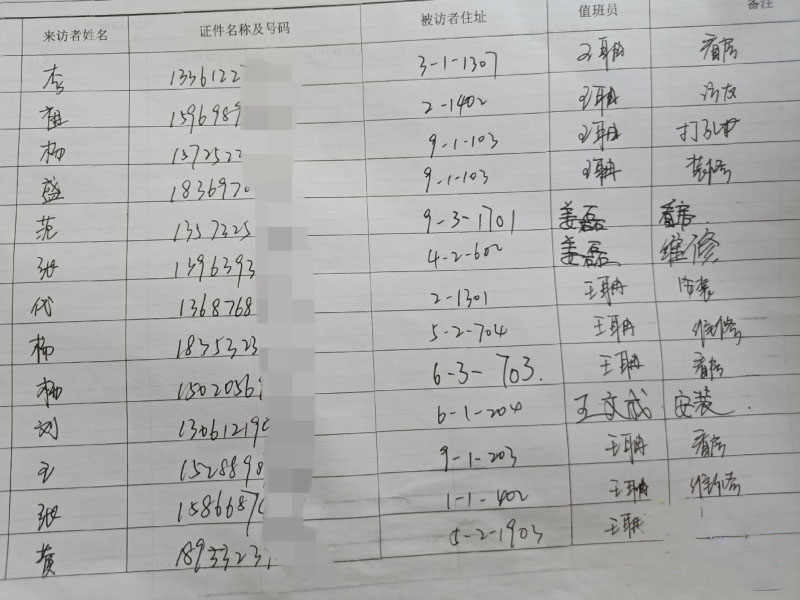 来访者姓名 证件名称及号码 被访者住址 值班员 备注
李 1336122 3-1-1307 王聃 看房
1596989 2-1402 王聃 访友
杨 1572522 9-1-103 王聃
盛 1836970 9-1-103 王聃 装修
范 1357325 9-3-1701 姜磊 看房
张 1396393 4-2-602 姜磊 维修
代 1368768 2-1301 王聃 安装
杨 1835323 5-2-704 王聃 维修
柳 1502056 6-3-703. 王聃 看房
刘 1306121 6-1-204 王文成 安装
王 152889 9-1-203 王聃 看房
张 1586687 1-1-402 王聃 维修
黄 1893323 5-2-1903 王聃